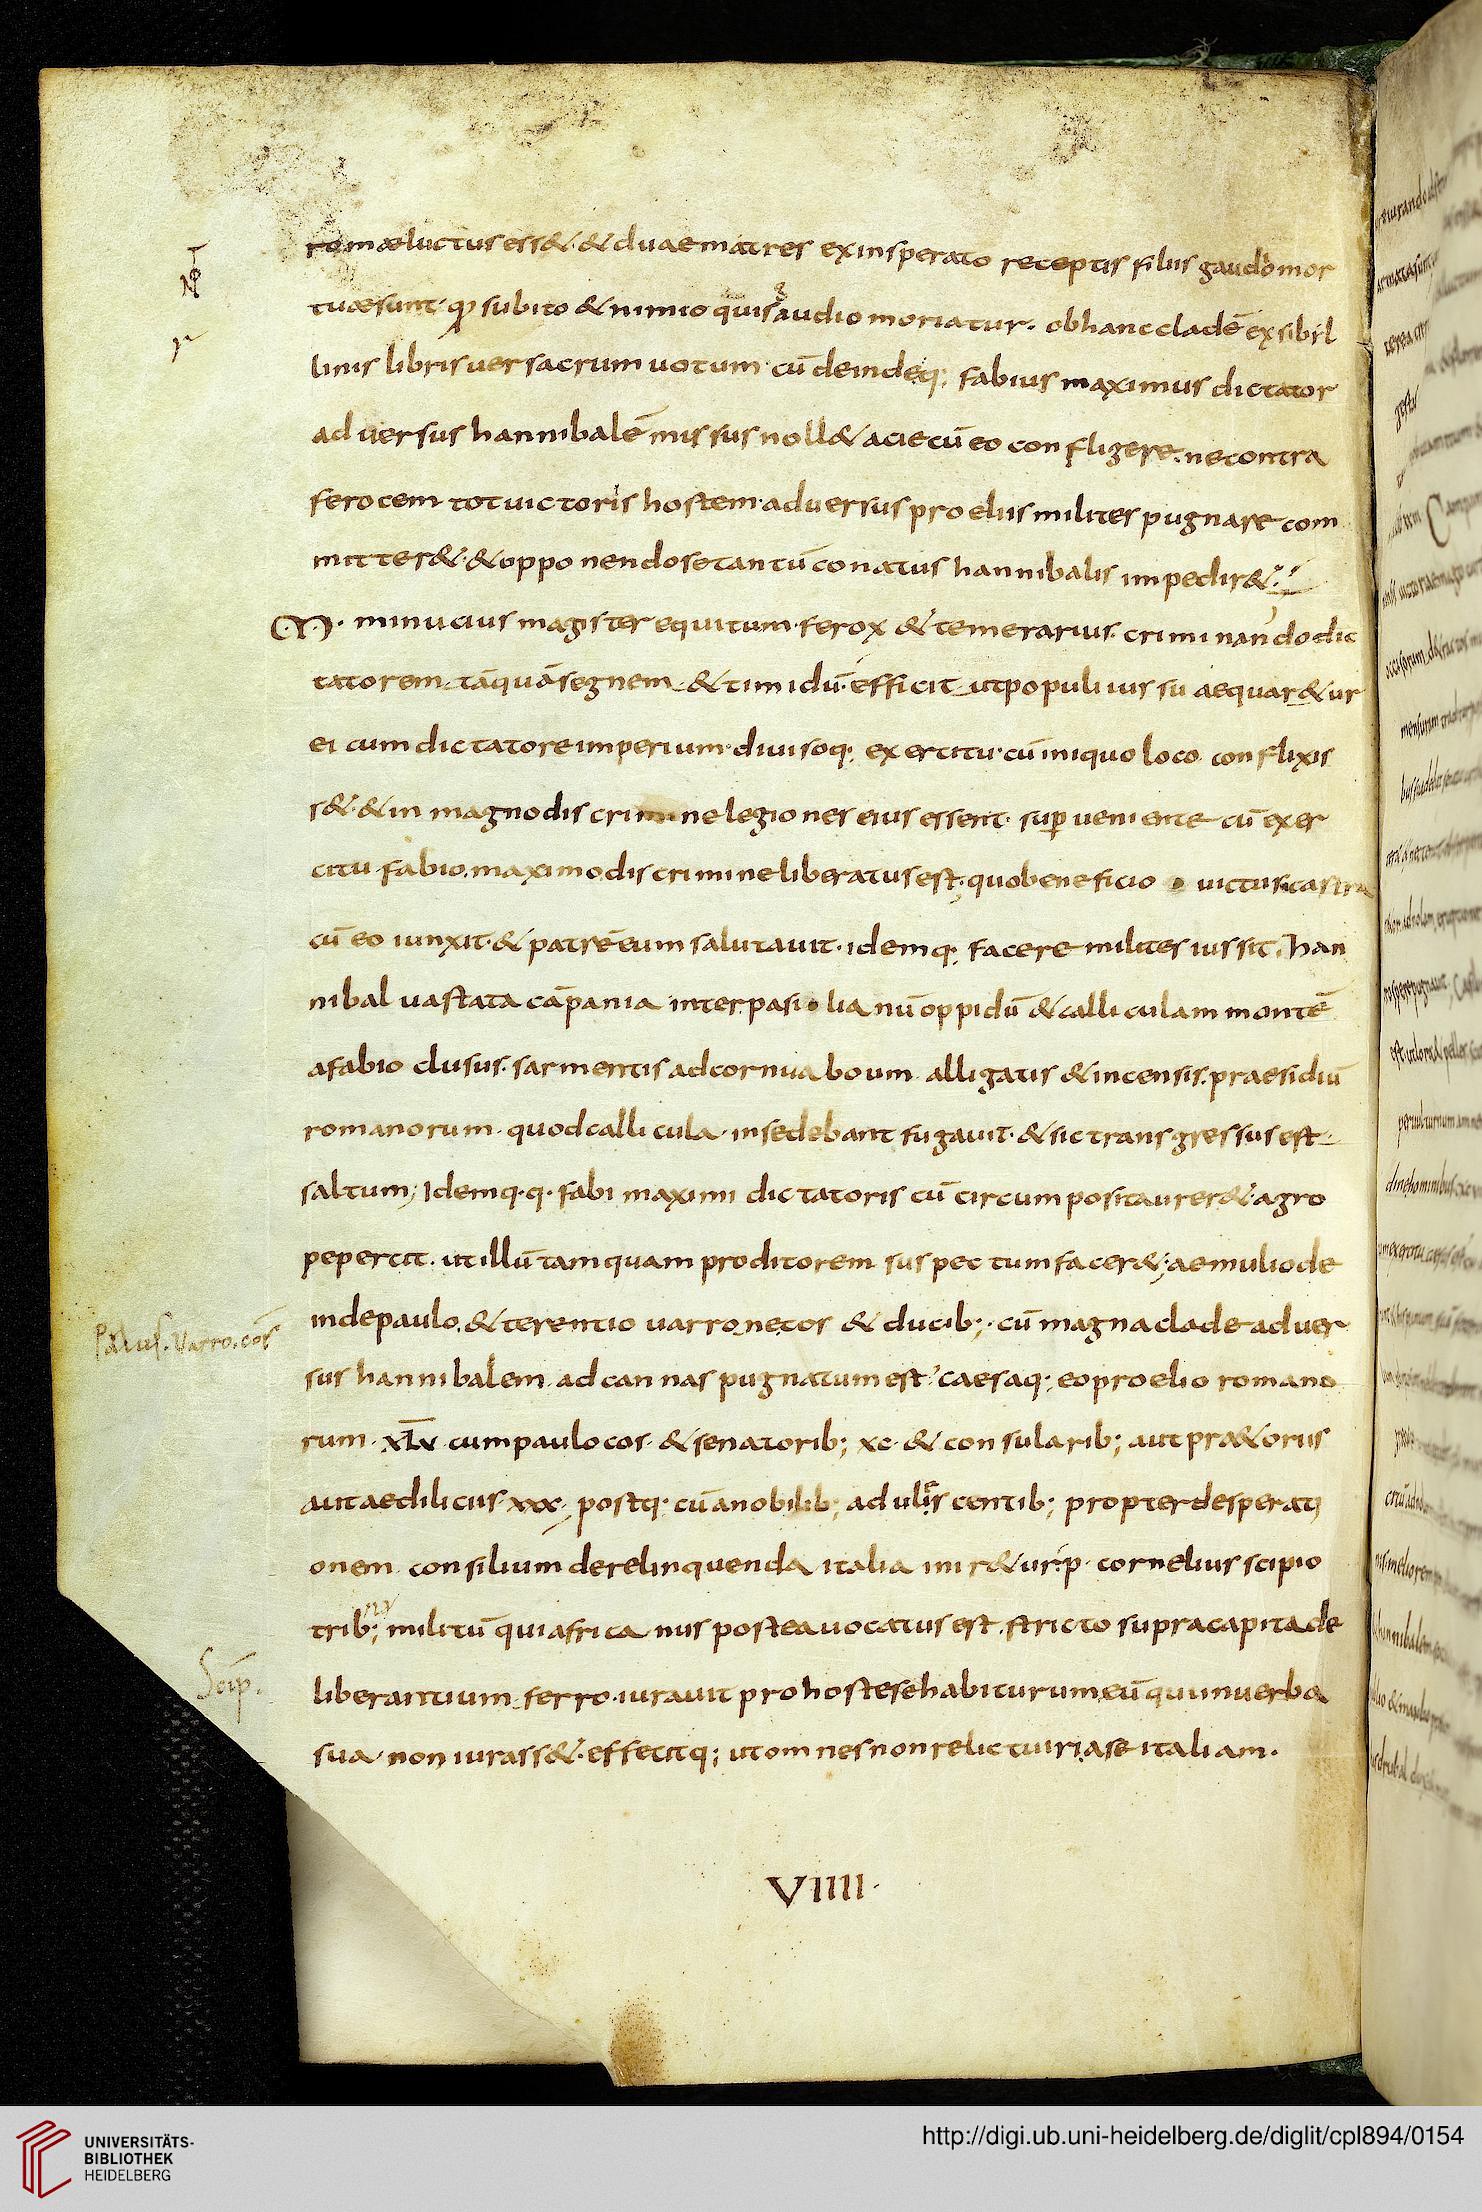 romæ luctus ess& & duae matres ex insperato receptis filiis gaudio mor
tuæ sunt. qđ subito & nimio quis gaudio moriatur. ob hanc cladē ex sibil
linis libris ver sacrum uotum. cū deinde q; fabius maximus dictator
aduersus hannibalē missus noll& acie cū eo confligere. ne contra
ferocem tot uictoris hostem. aduersus proeliis milites pugnare com
mitter&. & opponendo se tantū conatus hannibalis impedir&.
M. minucius magister equitum. ferox & temerarius. criminando dic
tatorem tāquā segnem & timidū. efficit ut populi iussu aequar&ur
ei cum dictatore imperium. diuisoq; exercitu. cū iniquo loco conflixis
s&. & in magno discrimine legiones eius essent. superueniente cū exer
citu fabio maximo discrimine liberatus est. quo beneficio uictus castra
cū eo iunxit. & patrē eum salutauit. idemq; facere milites iussit. Han
nibal uastata cāpania inter pasilianū oppidū & calliculam montē
a fabio clusus. sarmentis ad cornua boum alligatis & incensis. praesidiū
romanorum quod callicula insedebant fugauit. & sic transgressus est
saltum; Idemq. q. fabi maximi dictatoris cū circumposita urer& agro
pepercit. ut illū tamquam proditorem suspectum facer&; aemulio de
inde paulo. & terentio uarrone cos & ducib; cū magna clade aduer
sus hannibalem ad cannas pugnatum est. caesaq; eo proelio romano
rum. XLV. cum paulo cos. & senatorib; xc. & consularib; aut pr&oriis
aut aedilicus xxx; postq; cū a nobilib; adulis centib; propter desperati
onem consilium derelinquenda italia inir&ur. p. cornelius scipio
trib; militū qui africanus postea uocatus est. stricto supra capita de
liberantium ferro. iurauit pro hoste se habiturum eū qui in uerba
sua non iurass&. effecitq; ut omnes non relictuiri a se italiam.
Paulus. Varro. cos
Scip.
VIIII.
UNIVERSITÄTS-
BIBLIOTHEK
HEIDELBERG
http://digi.ub.uni-heidelberg.de/diglit/cpl894/0154